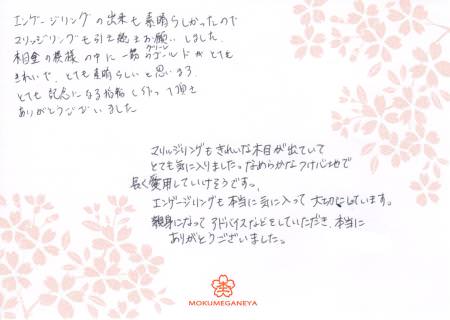 エンゲージリングの出来も素晴らしかったので
マリッジリングも引き続きお願いしました。
木目金の模様の中に一筋のグリーンゴールドがとても
きれいで、とても素晴らしいと思います。
とても記念になる指輪を作って頂き
ありがとうございました
マリッジリングもきれいな木目が出ていて
とても気に入りました。なめらかなつけ心地で
長く愛用していけそうです。
エンゲージリングも本当に気に入って大切にしています。
親身になってアドバイスなどをしていただき、本当に
ありがとうございました。
MOKUMEGANEYA